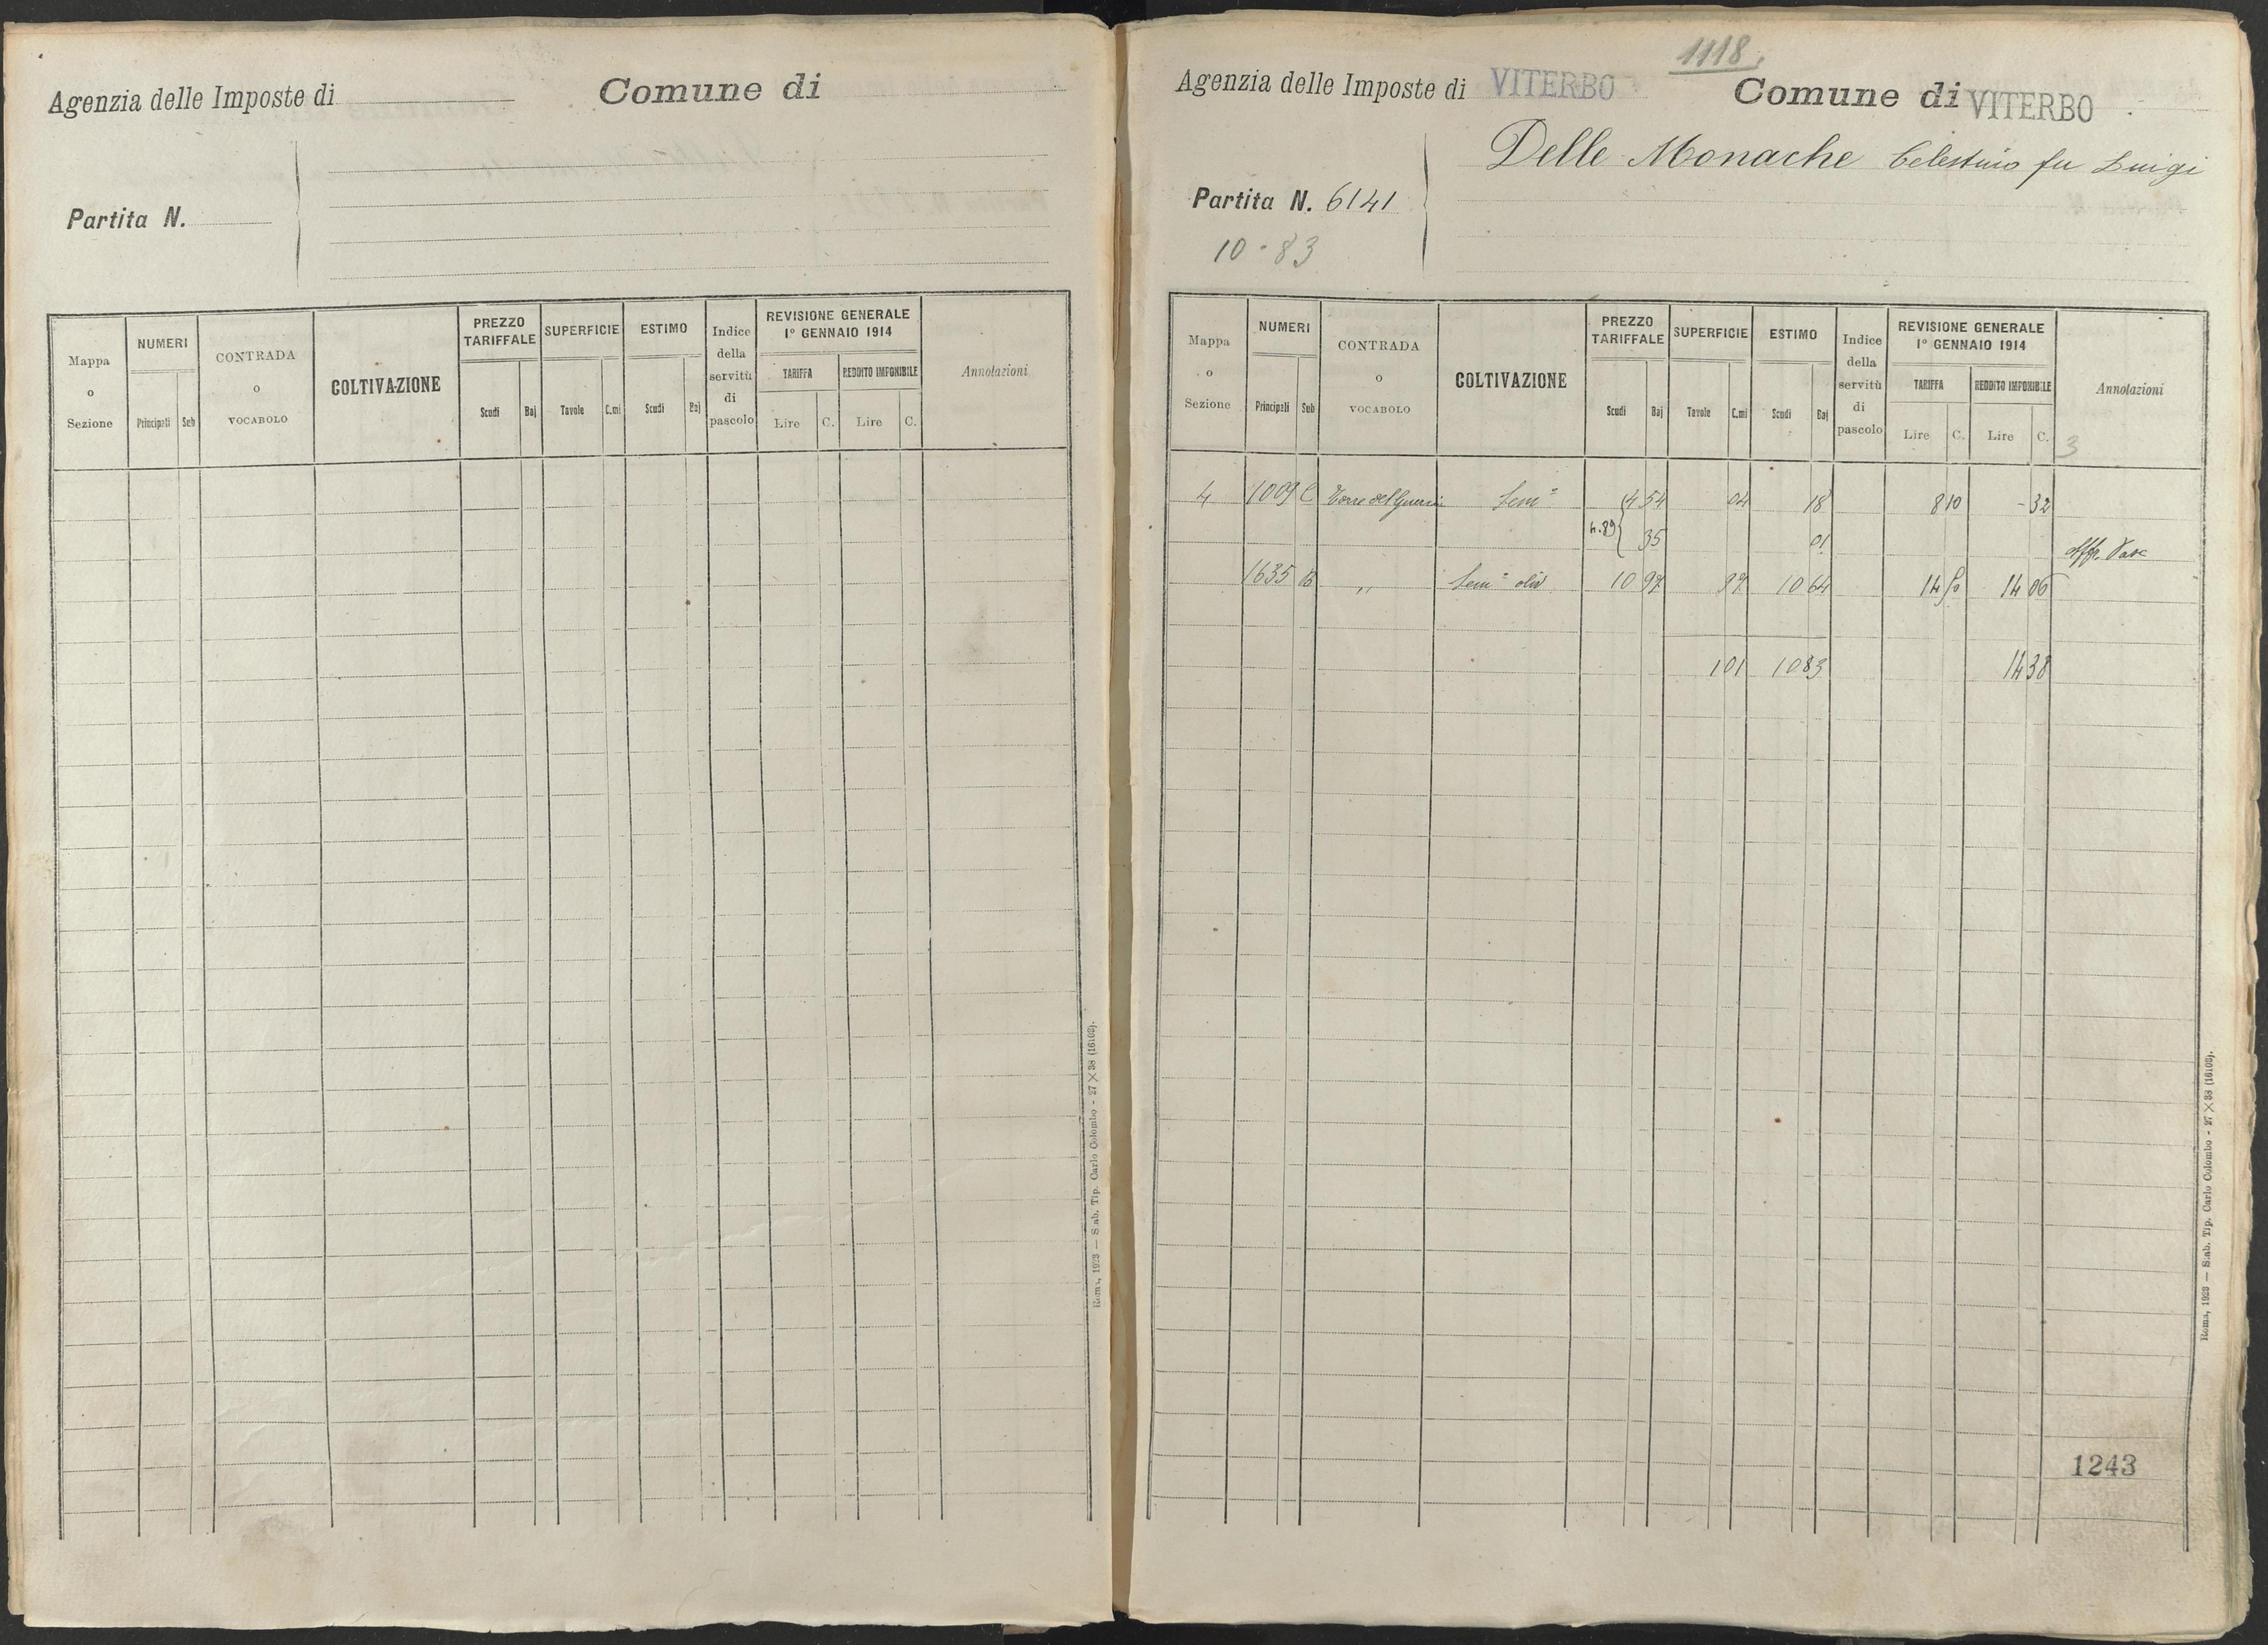 Agenzia delle Imposte di
Comune di
Partita N.
Mappa o Sezione
NUMERI
Principali Sub
CONTRADA o VOCABOLO
COLTIVAZIONE
PREZZO TARIFFALE
Scudi Baj
SUPERFICIE
Tavole C.mi
ESTIMO
Scudi Baj
Indice della servitù di pascolo
REVISIONE GENERALE 1° GENNAIO 1914
TARIFFA
Lire C.
REDDITO IMPONIBILE
Lire C.
Annotazioni
Roma, 1923 — Stab. Tip. Carlo Colombo - 27 × 38 (16103).
1118
Agenzia delle Imposte di VITERBO
Comune di VITERBO
Delle Monache Celestino fu Luigi
Partita N. 6141
10-83
Mappa o Sezione
NUMERI
Principali Sub
CONTRADA o VOCABOLO
COLTIVAZIONE
PREZZO TARIFFALE
Scudi Baj
SUPERFICIE
Tavole C.mi
ESTIMO
Scudi Baj
Indice della servitù di pascolo
REVISIONE GENERALE 1° GENNAIO 1914
TARIFFA
Lire C.
REDDITO IMPONIBILE
Lire C.
Annotazioni
3
4 1009 C Torre del Sem° 4 54 04 18 8 10 - 32
4.89 35 01
Affr.
1635 B " Sem° oliv 10 97 97 10 64 14 50 14 06
1 01 10 83 14 38
1243
Roma, 1923 — Stab. Tip. Carlo Colombo - 27 × 38 (16103).